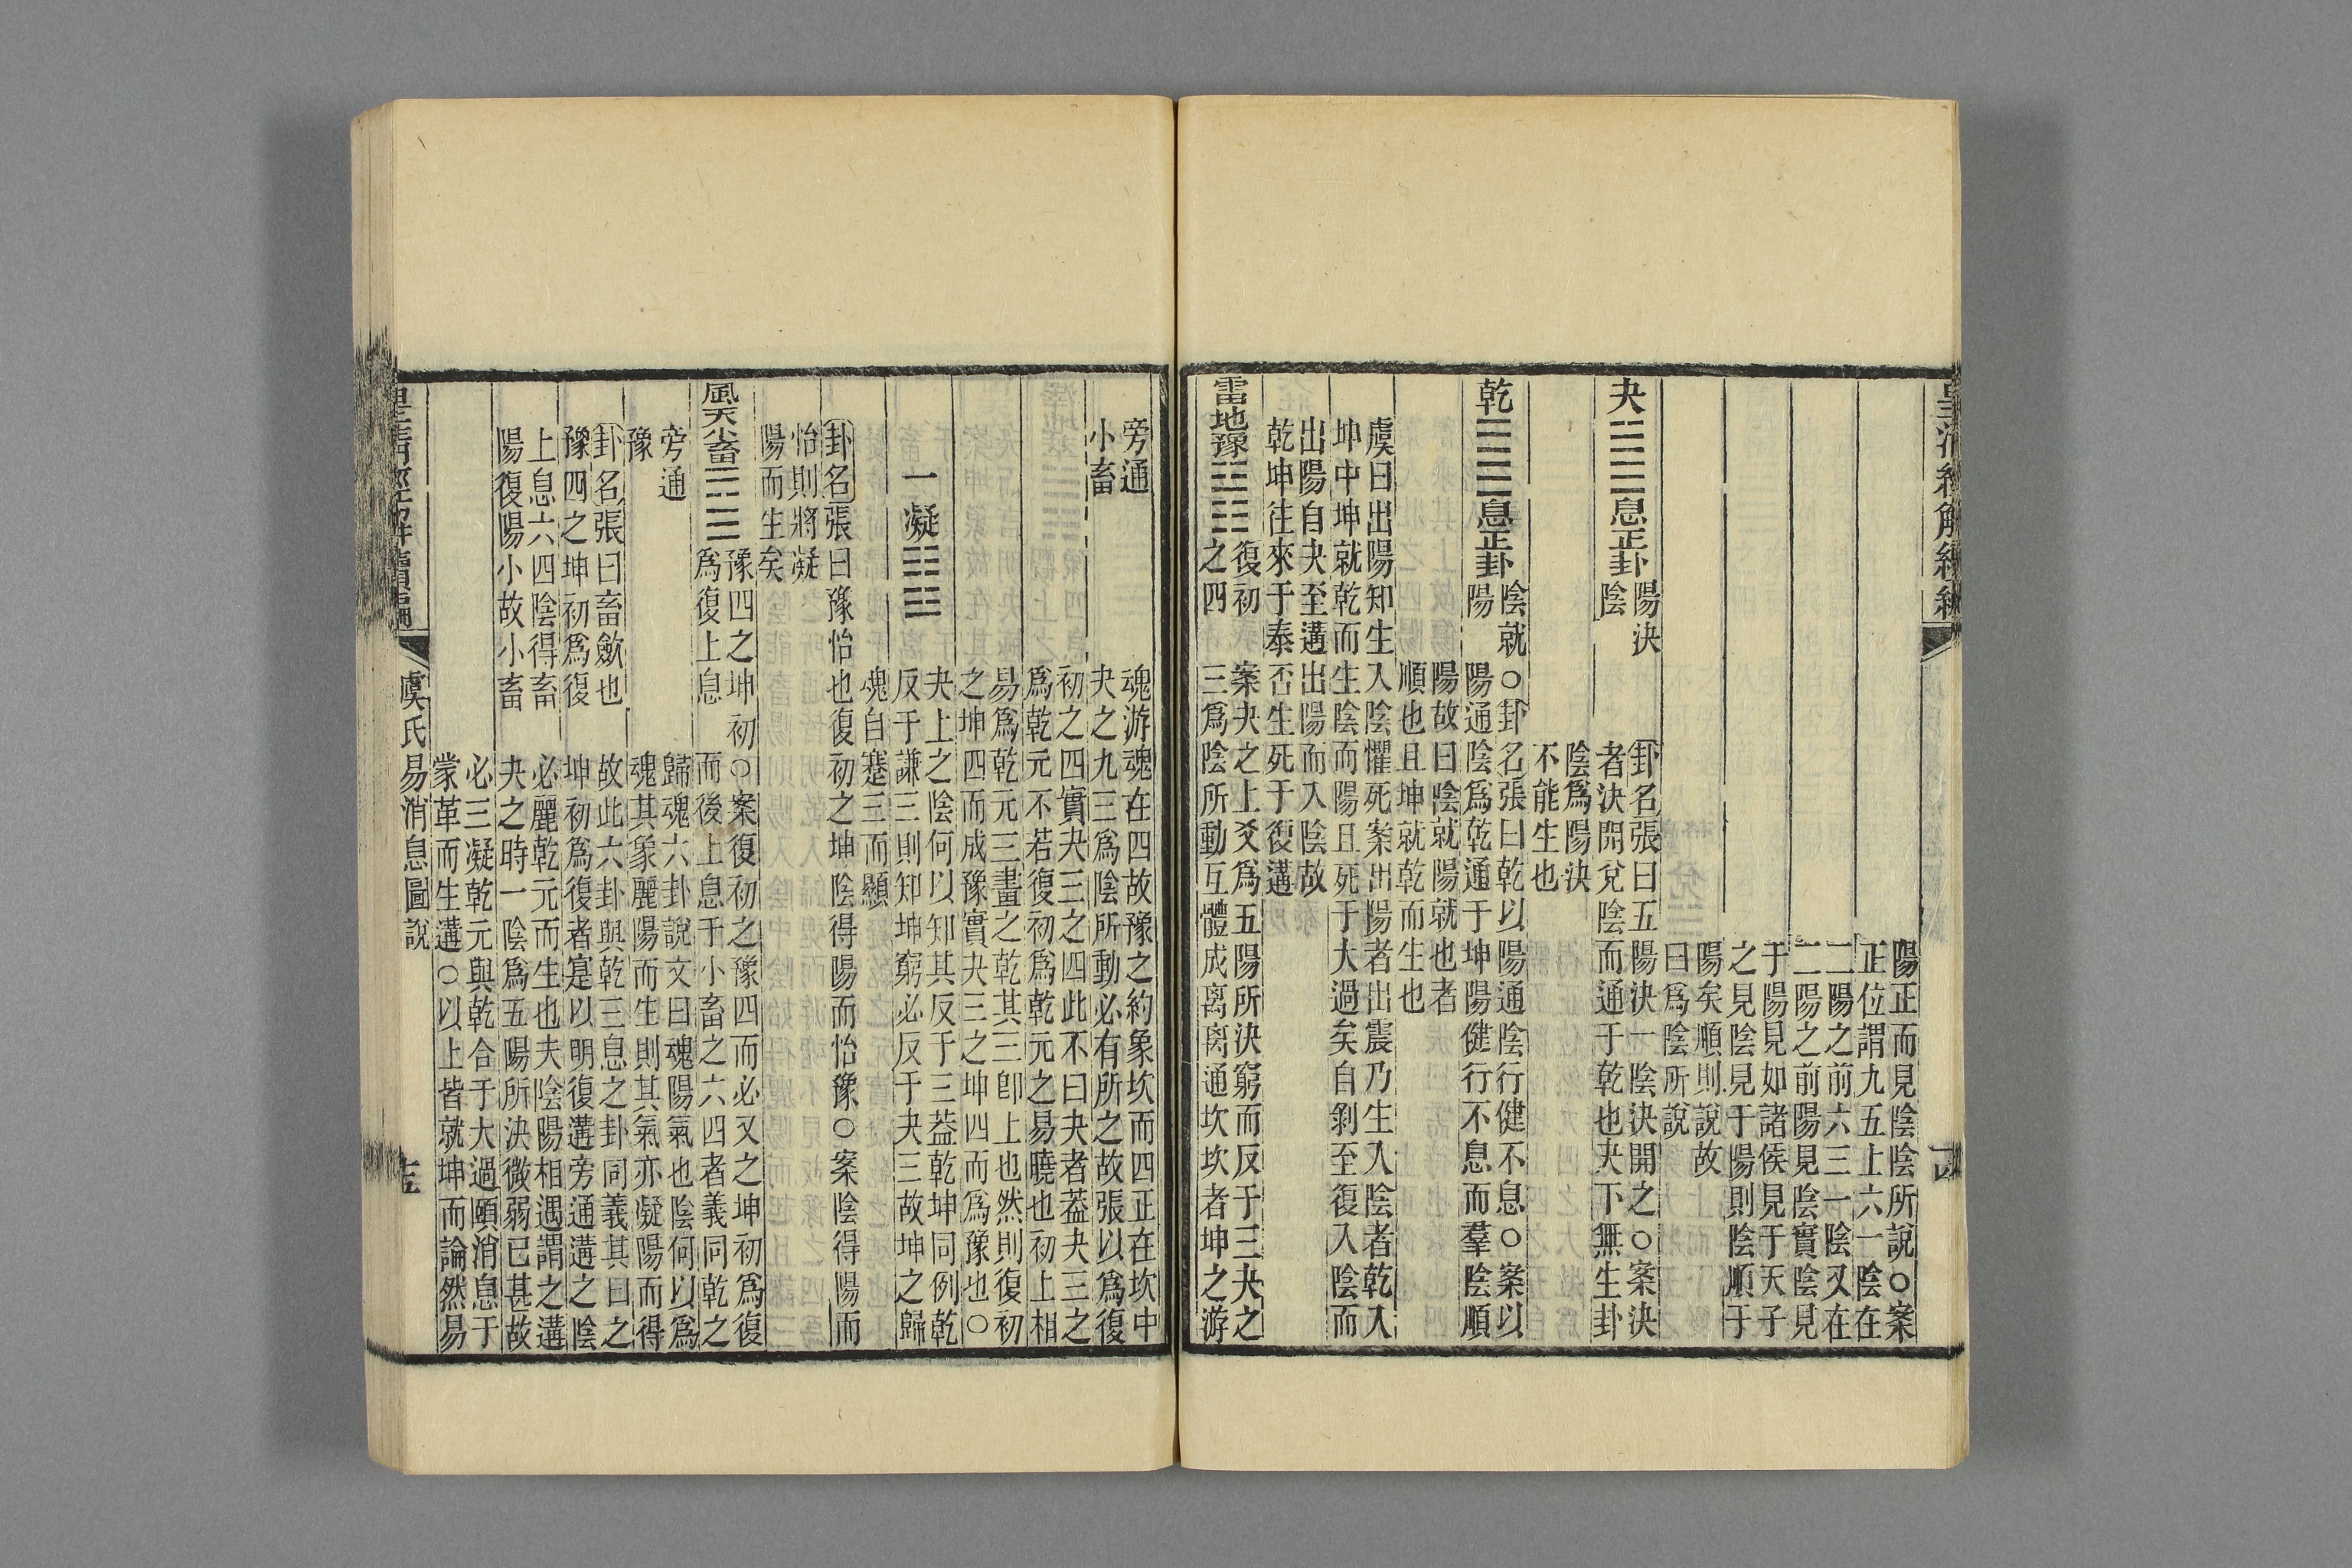 皇清經解續編
十四
陽正而見陰陰所說○案
正位謂九五上六一陰在
二陽之前六三一陰又在
二陽之前陽見陰實陰見
于陽見如諸侯見于天子
之見陰見于陽則陰順于
陽矣順則說故
曰爲陰所說
夬☱☰息正卦
陽決
陰
卦名張曰五陽決一陰決開之○案決
者決開兌陰而通于乾也夬下無生卦
陰爲陽決
不能生也
乾☰☰息正卦
陰就○卦名張曰乾以陽通陰行健不息○案以
陽 陽通陰爲乾通于坤陽健行不息而羣陰順
陽故曰陰就陽就也者
順也且坤就乾而生也
虞曰出陽知生入陰懼死案出陽者出震乃生入陰者乾入
坤中坤就乾而生陰而陽且死于大過矣自剝至復入陰而
出陽自夬至遘出陽而入陰故
乾坤往來于泰否生死于復遘
雷地豫☳☷
復初
之四
案夬之上爻爲五陽所決窮而反于三夬之
三爲陰所動互體成离离通坎坎者坤之游
旁通
小畜
魂游魂在四故豫之約象坎而四正在坎中
夬之九三爲陰所動必有所之故張以爲復
初之四實夬三之四此不曰夬者葢夬三之
爲乾元不若復初爲乾元之易曉也初上相
易爲乾元三畫之乾其三卽上也然則復初
之坤四而成豫實夬三之坤四而爲豫也○
夬上之陰何以知其反于三葢乾坤同例乾
反于謙三則知坤窮必反于夬三故坤之歸
魂自蹇三而顯
一凝☷☷
卦名張曰豫怡也復初之坤陰得陽而怡豫○案陰得陽而
怡則將凝
陽而生矣
風天小畜☴☰
豫四之坤初○案復初之豫四而必又之坤初爲復
爲復上息 而後上息于小畜之六四者義同乾之
旁通
豫
歸魂六卦說文曰魂陽氣也陰何以爲
魂其象麗陽而生則其氣亦凝陽而得
卦名張曰畜斂也
故此六卦與乾三息之卦同義其曰之
豫四之坤初爲復
坤初爲復者寔以明復遘旁通遘之陰
上息六四陰得畜
必麗乾元而生也夫陰陽相遇謂之遘
陽復陽小故小畜
夬之時一陰爲五陽所決微弱已甚故
必三凝乾元與乾合于大過頤消息于
蒙革而生遘○以上皆就坤而論然易
皇清經解續編
虞氏易消息圖說
十五